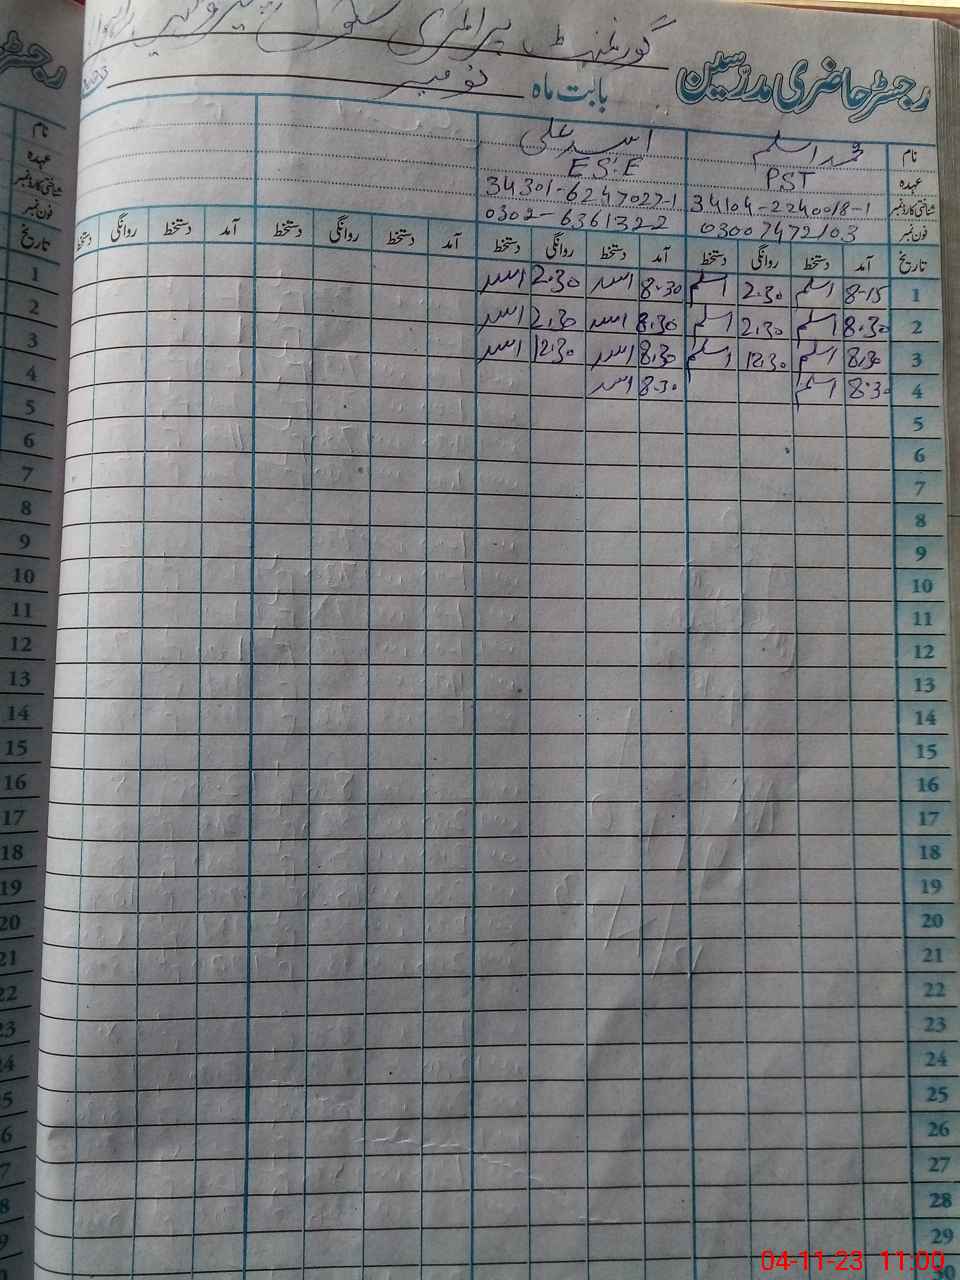 گورنمنٹ پرائمری سکول
رجسٹر حاضری مدرسین
بابت ماہ نومبر
نام محمد اسلم اسد علی
عہدہ PST E.S.E
شناختی کارڈ نمبر 34104-2240018-1 34301-6247027-1
فون نمبر 03007472103 0302-6361322
تاریخ آمد دستخط روانگی دستخط آمد دستخط روانگی دستخط آمد دستخط روانگی دستخط آمد دستخط روانگی دستخط
1 8-15 اسلم 2.30 اسلم 8.30 اسد 2.30 اسد
2 8.30 اسلم 2.30 اسلم 8.30 اسد 2.30 اسد
3 8.30 اسلم 12.30 اسلم 8.30 اسد 12.30 اسد
4 8.30 اسلم 8.30 اسد
5
6
7
8
9
10
11
12
13
14
15
16
17
18
19
20
21
22
23
24
25
26
27
28
29
30
04-11-23 11:00